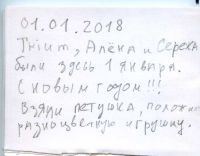 01.01.2018
Тниит, Алёна и Серёха
были здесь 1 января.
С новым годом!!!
Взяли петушка, положили
разноцветную игрушку.